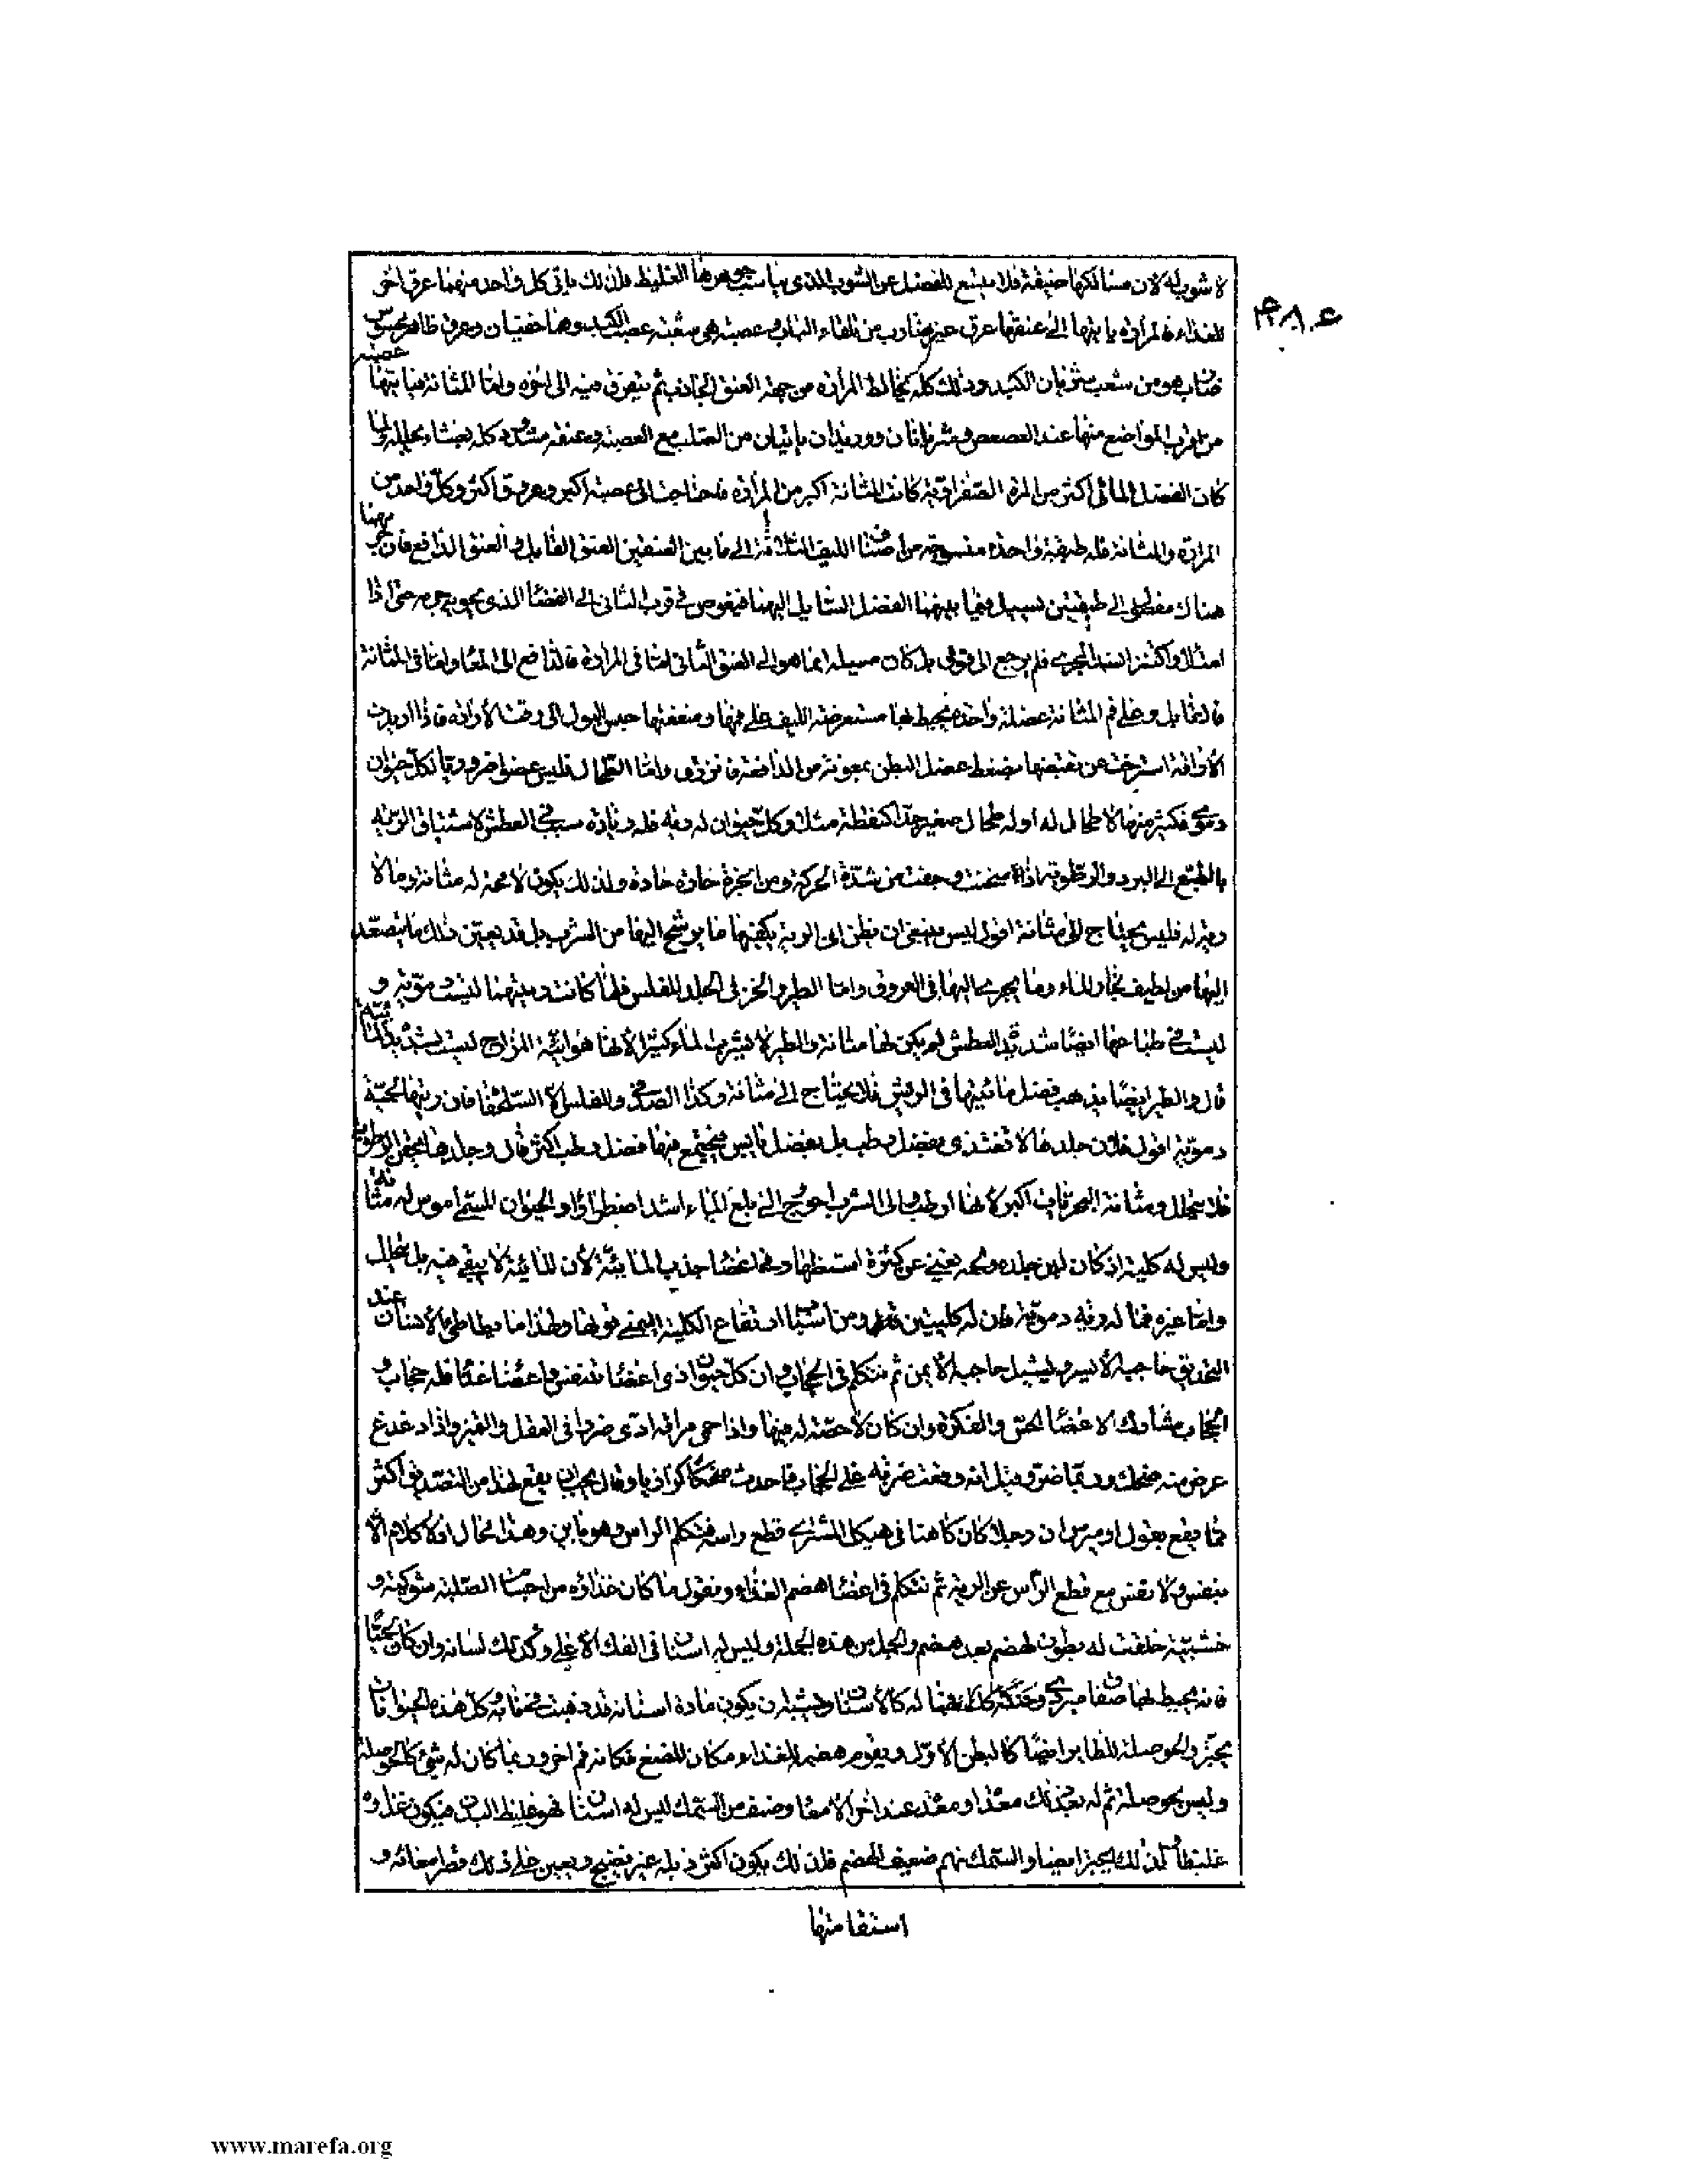 لا شوب له لان مسالكها ضيقة فلا يتسع للفضل عن الشوب الذى يناسب جوهرها الغليظ فلذلك ياتى كل واحد منهما عرق اخر
للغذاء فالمرارة ياتيها الى عنقها عرق غير ضارب من تلقاء الباب وعصبة هى شعبة عصب الكبد وهما خفيان وعرق ظاهر محسوس
ضاب هو من شعب شريان الكبد وذلك كله يخالط المرارة من جهة العنق الجاذب ثم يتفرق فيه الى اخره واما المثانة فياتيها عصبة
من اقرب المواضع منها عند العصعص وشريانان ووريدان ياتيان من الصلب مع العصبة وعنقه مشدود كله بغشاء يجلله ولما
كان الفضل المائى اكثر من المرة الصفراوية كانت المثانة اكبر من المرارة فاحتاجت الى عصبة اكبر وعروق اكثر وكل واحد من
المرارة والمثانة فله طبقة واحدة منسوجة من اصناف الليف الثلاثة الى ما بين العنقين العنق القابل والعنق الدافع فان جرمهما
هناك ينقسم الى طبقتين يسيل فيما بينهما الفضل السايل اليهما فيغوص فى قرب الثانى الى الفضا الذى يحويه جرمه حتى اذا
امتلا واكتنز انسد المجرى فلم يرجع الى فوق بل كان مسيله انما هو الى العنق الثانى اما فى المرارة فالدافع الى المعا واما فى المثانة
فالى القابل وعلى فم المثانة عضلة واحدة يحيط بها مستعرضة الليف على فمها ومنفعتها حبس البول الى وقت الاراقة فاذا اريدت
الاراقة استرخت عن تقبضها فضغط عضل البطن بمعونة من الدافعة فانزرق واما الطحال فليس عضوا ضروريا لكل حيوان
دموى فكثير منها لا طحال له او له طحال صغير جدا كنقطة مثلا وكل حيوان له رئة فله زيادة سبب فى العطش لاشتياق الرئة
بالطبع الى البرد والرطوبة اذا سخنت وجفت من شدة الحركة ومن ابخرة حارة حادة ولذلك يكون لا محة له مثانة وما لا
رئة له فليس يحتاج الى مثانة اقول ليس ينبغى ان يظن ان الرية يكفيها ما يرشح اليها من الشرب بل قد يعين ذلك ما يتصعد
اليها من لطيف بخار الماء وما يجرى اليها فى العروق واما الطير والخزفى الجلد المفلس فلما كانت ريتهما ليست دموية و
ليست فى طباعها ايضا شديد العطش لم يكن لها مثانة والطير لا يشرب الماء كثيرا لانها هوائية المزاج ليست بشديد
قال والطير ايضا يذهب فضل مائيتها فى الريش فلا يحتاج الى مثانة وكذا الصدفى والمفلس الا السلحفا فان ريتها لحمية
دموية اقول فلان جلدها لا تغتذى بفضل رطب بل بفضل يابس فيجتمع فيها فضل رطب اكثر قال وجلدها يحقن الرطوبة
فلا يتحلل ومثانة البحريات اكبر لانها ارطب والى الشرب احوج والى بلع الماء اشد اضطرارا والحيوان المسمى اموس له مثانة
وليس له كلية اذ كان لين جلده ولحمه يغنى عن كثرة استظهار فى اعضا جذب المائية لان المائية لا يبقى فيه بل يتحلل
واما غيره مما له رئة دموية فان له كليتين ومن اسباب ارتفاع الكلية اليمنى قوتها ولهذا ما يطاطى الانسان عند
التحديق حاجبه الايسر ويشيل حاجبه الايمن ثم نتكلم فى الحجاب وان كل حيوان ذى اعضا تنفس واعضا غذا فله حجاب و
الحجاب مشارك لاعضا الحس والفكرة وان كان لا حصة له فيها واذا حمى مراقه ادى ضررا فى العقل والتميز واذا دغدغ
عرض منه ضحك وربما ضر وقيل انه وقعت ضربة على الحجاب فاحدث ضحكا وقال يجب ان يقع لهذا من التصديق اكثر
مما يقع بقول اوميرس ان رجلا كان كاهنا فى هيكل المشترى قطع راسه فتكلم الراس وهو باين وهذا محال اذ لا كلام الا
بنفس ولا نفس مع قطع الراس عن الرية ثم نتكلم فى اعضا هضم الغذاء ونقول ما كان غذاؤه من اجسام الصلبة شوكية و
خشبية خلقت له بطون لهضم بعد هضم والجمل من هذه الجملة وليس له اسنان فى الفك الاعلى وكذلك لسانه وان كان لحميا
فانه يحيط بها صفاق وحنكه كله بقيا له كالاسنان ويشبه ان يكون مادة اسنانه قد ذهبت كل هذه الحيوانات
يجتر والحوصلة للطاير ايضا كالبطن الاول ويقوم هضمه للغذاء مكان المضغ فكانه فم اخر وربما كان له شئ كالحوصلة
وليس بحوصلة ثم له بعد ذلك معدة ومعد عند اخر الامعا وصنف من السمك ليس له اسنان فهو غليظ البدن فيكون غذاوه
غليظا فلذلك يجتر ايضا والسمك نهم ضعيف الهضم فلذلك يكون اكثر زبله غير نضيج ويعين على ذلك قصر امعائه و
استقامتها
٣٨٠ع
www.marefa.org